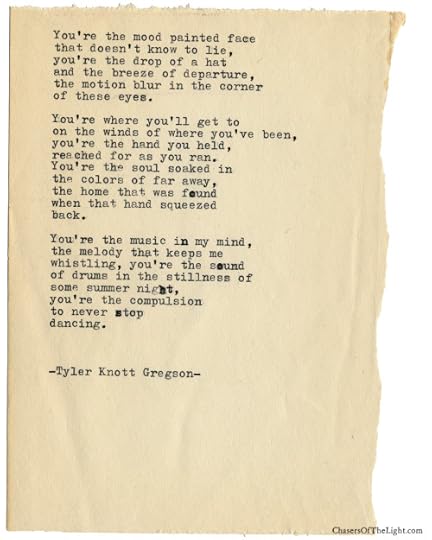 You're the mood painted face
that doesn't know to lie,
you're the drop of a hat
and the breeze of departure,
the motion blur in the corner
of these eyes.
You're where you'll get to
on the winds of where you've been,
you're the hand you held,
reached for as you ran.
You're the soul soaked in
the colors of far away,
the home that was found
when that hand squeezed
back.
You're the music in my mind,
the melody that keeps me
whistling, you're the sound
of drums in the stillness of
some summer night,
you're the compulsion
to never stop
dancing.
-Tyler Knott Gregson-
ChasersOfTheLight.com